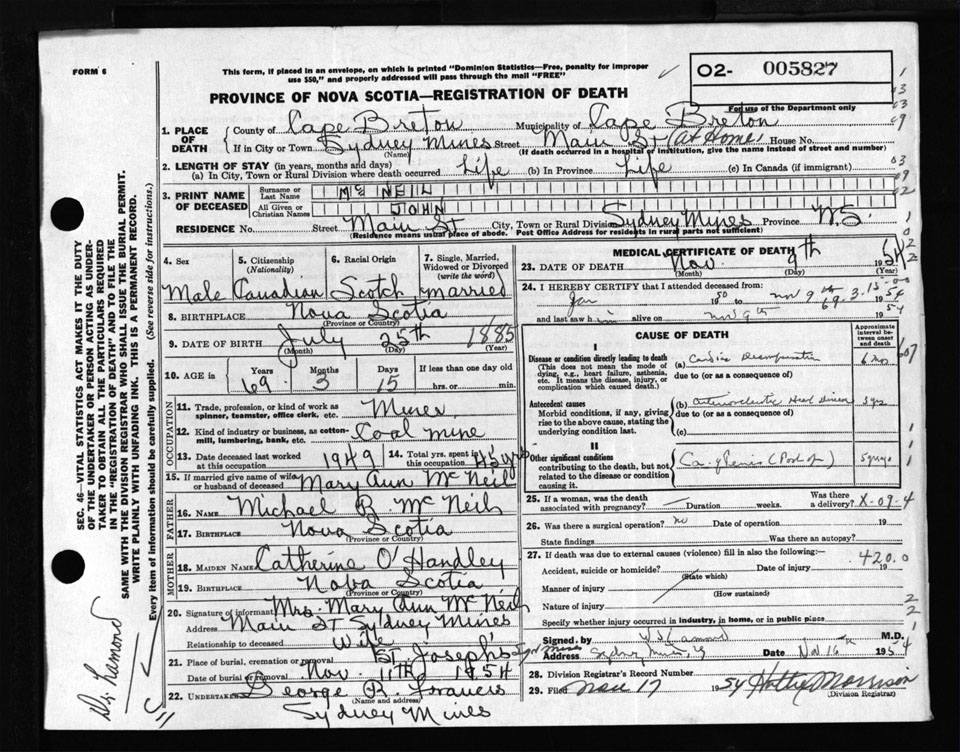 FORM 6
This form, if placed in an envelope, on which is printed "Dominion Statistics—Free, penalty for improper
use $50," and properly addressed will pass through the mail "FREE"
O2- 005827
For use of the Department only
PROVINCE OF NOVA SCOTIA—REGISTRATION OF DEATH
1. PLACE OF DEATH
County of Cape Breton Municipality of Cape Breton
If in City or Town Sydney Mines Street Main St (At Home) House No.
(Name) (If death occurred in a hospital or institution, give the name instead of street and number)
2. LENGTH OF STAY (in years, months and days)
(a) In City, Town or Rural Division where death occurred Life (b) In Province Life (c) In Canada (if immigrant)
3. PRINT NAME OF DECEASED
Surname or Last Name Mc NEIL
All Given or Christian Names JOHN
RESIDENCE No. Street Main St City, Town or Rural Division Sydney Mines Province N.S.
(Residence means usual place of abode. Post Office Address for residents in rural parts not sufficient)
4. Sex Male
5. Citizenship (Nationality) Canadian
6. Racial Origin Scotch
7. Single, Married, Widowed or Divorced (write the word) married
8. BIRTHPLACE Nova Scotia
(Province or Country)
9. DATE OF BIRTH July 25th 1885
(Month) (Day) (Year)
10. AGE in Years 69 Months 3 Days 15 If less than one day old hrs. or min.
OCCUPATION
11. Trade, profession, or kind of work as spinner, teamster, office clerk, etc. Miner
12. Kind of industry or business, as cotton-mill, lumbering, bank, etc. Coal Mine
13. Date deceased last worked at this occupation 1949
14. Total yrs. spent in this occupation 45 yrs
15. If married give name of wife or husband of deceased Mary Ann Mc Neil
FATHER
16. NAME Michael B. Mc Neil
17. BIRTHPLACE Nova Scotia
(Province or Country)
MOTHER
18. MAIDEN NAME Catherine O'Handley
19. BIRTHPLACE Nova Scotia
(Province or Country)
20. Signature of informant Mrs. Mary Ann Mc Neil
Address Main ST Sydney Mines
Relationship to deceased Wife
21. Place of burial, cremation or removal St. Joseph's Syd Mines
Date of burial or removal Nov. 11TH 1954
22. UNDERTAKER George R. Francis
(Name and address)
Sydney Mines
MEDICAL CERTIFICATE OF DEATH
23. DATE OF DEATH Nov. 9th 1954
(Month) (Day) (Year)
24. I HEREBY CERTIFY that I attended deceased from:
Jan 1950 to Nov 9th 1954
69.3.15
and last saw him alive on Nov 9th 1954
CAUSE OF DEATH
Approximate interval between onset and death
I
Disease or condition directly leading to death
(This does not mean the mode of dying, e.g., heart failure, asthenia, etc. It means the disease, injury, or complication which caused death.)
(a) Cardiac Decompensation
due to (or as a consequence of)
Antecedent causes
Morbid conditions, if any, giving rise to the above cause, stating the underlying condition last.
(b) Arteriosclerotic Heart Disease 5 yrs
due to (or as a consequence of)
(c)
II
Other significant conditions
contributing to the death, but not related to the disease or condition causing it
25. If a woman, was the death associated with pregnancy? Duration weeks. Was there a delivery? X-09-4
26. Was there a surgical operation? no Date of operation 19
State findings Was there an autopsy?
27. If death was due to external causes (violence) fill in also the following:—
420.0
Accident, suicide or homicide? Date of injury 19
(State which)
Manner of injury
(How sustained)
Nature of injury
Specify whether injury occurred in industry, in home, or in public place
Signed by M.D.
Address Sydney Mines, NS Date Nov 16th 1954
28. Division Registrar's Record Number
29. Filed Nov 17 1954 Hattie Morrison
(Division Registrar)
SEC. 46—VITAL STATISTICS ACT MAKES IT THE DUTY
OF THE UNDERTAKER OR PERSON ACTING AS UNDER-
TAKER TO OBTAIN ALL THE PARTICULARS REQUIRED
IN THE "REGISTRATION OF DEATH" AND TO FILE THE
SAME WITH THE DIVISION REGISTRAR WHO SHALL ISSUE THE BURIAL PERMIT.
WRITE PLAINLY WITH UNFADING INK. THIS IS A PERMANENT RECORD.
Every item of information should be carefully supplied. (See reverse side for instructions.)
Dr. Lamond